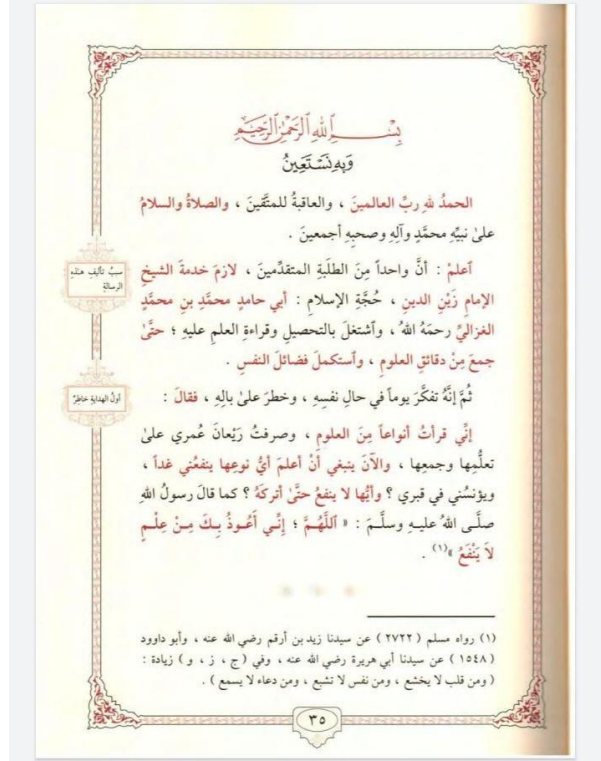 بِسْمِ ٱللهِ ٱلرَّحْمٰنِ ٱلرَّحِيْمِ
وَبِهِ نَسْتَعِينُ
الحمدُ للهِ ربِّ العالمينَ ، والعاقبةُ للمتَّقينَ ، والصلاةُ والسلامُ
علىٰ نبيِّهِ محمَّدٍ وآلِهِ وصحبِهِ أجمعينَ .
سببُ تأليفِ هـٰذهِ
الرسالةِ
ٱعلمْ : أنَّ واحداً مِنَ الطلَبةِ المتقدِّمينَ ، لازمَ خدمةَ الشيخِ
الإمامِ زَيْنِ الدينِ ، حُجَّةِ الإسلامِ : أبي حامدٍ محمَّدِ بنِ محمَّدٍ
الغزاليِّ رحمَهُ اللهُ ، وٱشتغلَ بالتحصيلِ وقراءةِ العلمِ عليهِ ؛ حتَّىٰ
جمعَ مِنْ دقائقِ العلومِ ، وٱستكملَ فضائلَ النفسِ .
أولُ الهدايةِ خاطِرٌ
ثُمَّ إنَّهُ تفكَّرَ يوماً في حالِ نفسِهِ ، وخطرَ علىٰ بالِهِ ، فقالَ :
إنِّي قرأتُ أنواعاً مِنَ العلومِ ، وصرفتُ رَيْعانَ عُمري علىٰ
تعلُّمِها وجمعِها ، والآنَ ينبغي أنْ أعلمَ أيُّ نوعِها ينفعُني غداً ،
ويؤنسُني في قبري ؟ وأيُّها لا ينفعُ حتَّىٰ أتركَهُ ؟ كما قالَ رسولُ اللهِ
صلَّى اللهُ عليهِ وسلَّمَ : « ٱللَّهُمَّ ؛ إِنِّي أَعُوذُ بِكَ مِنْ عِلْمٍ
لاَ يَنْفَعُ »(١) .
(١) رواه مسلم ( ٢٧٢٢ ) عن سيدنا زيد بن أرقم رضي الله عنه ، وأبو داوود
( ١٥٤٨ ) عن سيدنا أبي هريرة رضي الله عنه ، وفي ( ج ، ز ، و ) زيادة :
( ومن قلب لا يخشع ، ومن نفس لا تشبع ، ومن دعاء لا يسمع ) .
٣٥